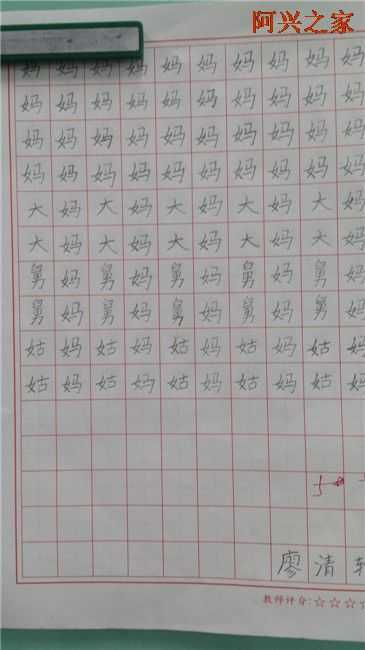 阿兴之家
妈妈妈妈妈妈妈妈妈妈
妈妈妈妈妈妈妈妈妈妈
妈妈妈妈妈妈妈妈妈妈
妈妈妈妈妈妈妈妈妈妈
大妈大妈大妈大妈大妈
大妈大妈大妈大妈大妈
舅妈舅妈舅妈舅妈舅妈
舅妈舅妈舅妈舅妈舅妈
姑妈姑妈姑妈姑妈姑妈
姑妈姑妈姑妈姑妈姑妈
廖清
教师评分:☆☆☆☆